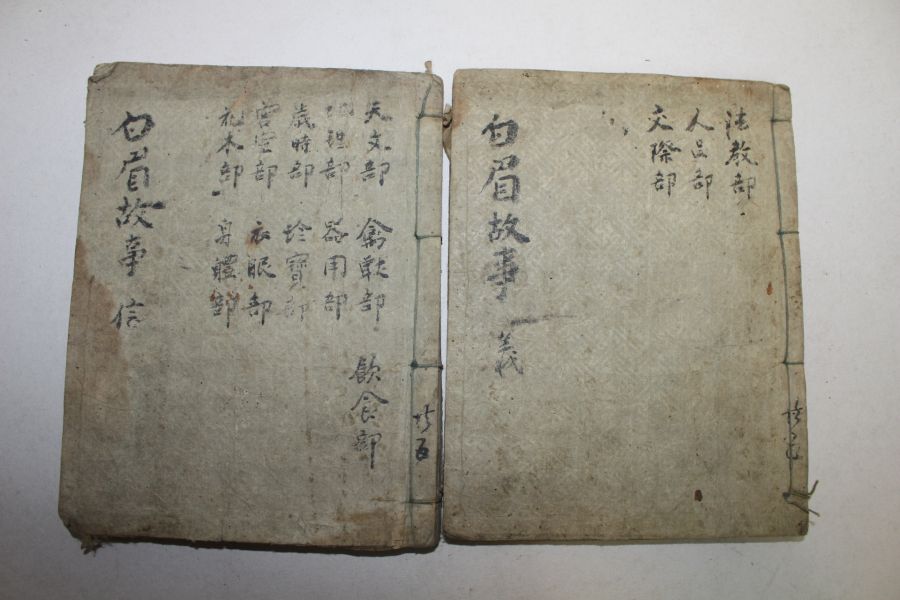 共五
法教部
人品部
交際部
白眉故事 義
共五
天文部 禽獸部 飲食部
地理部 器用部
歲時部 珍寶部
宮室部 衣服部
花木部 身體部
白眉故事 信